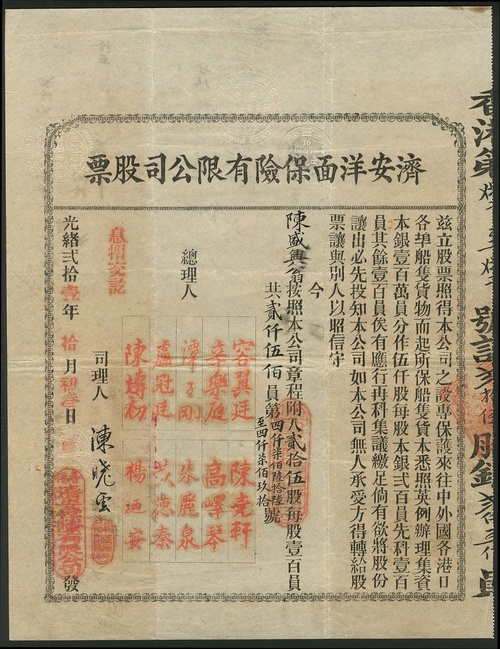 濟安洋面保險有限公司股票
香港第 號計 股銀 員
茲立股票照得本公司之設專保護來往中外國各港口
各埠船隻貨物而起所保船隻貨本悉照英例辦理集資
本銀壹百萬員分作伍仟股每股本銀弍百員先科壹百
員其餘壹百員俟有應行再科集議繳足倘有欲將股份
讓出必先投知本公司如本公司無人承受方得轉給股
票讓與別人以照信守
今
陳盛興翁按照本公司章程附入貳拾伍股每股壹百員
共貳仟伍佰員第四仟柒佰陸拾陸
至四仟柒佰玖拾號
總理人
容翼廷 陳堯軒
辛樂庭 高嶧琴
譚子剛 朱麗泉
盧冠廷 德泰
陳 初 楊 安
司理人 陳曉雲
息摺交訖
光緒弍拾壹年拾月初叁日 發